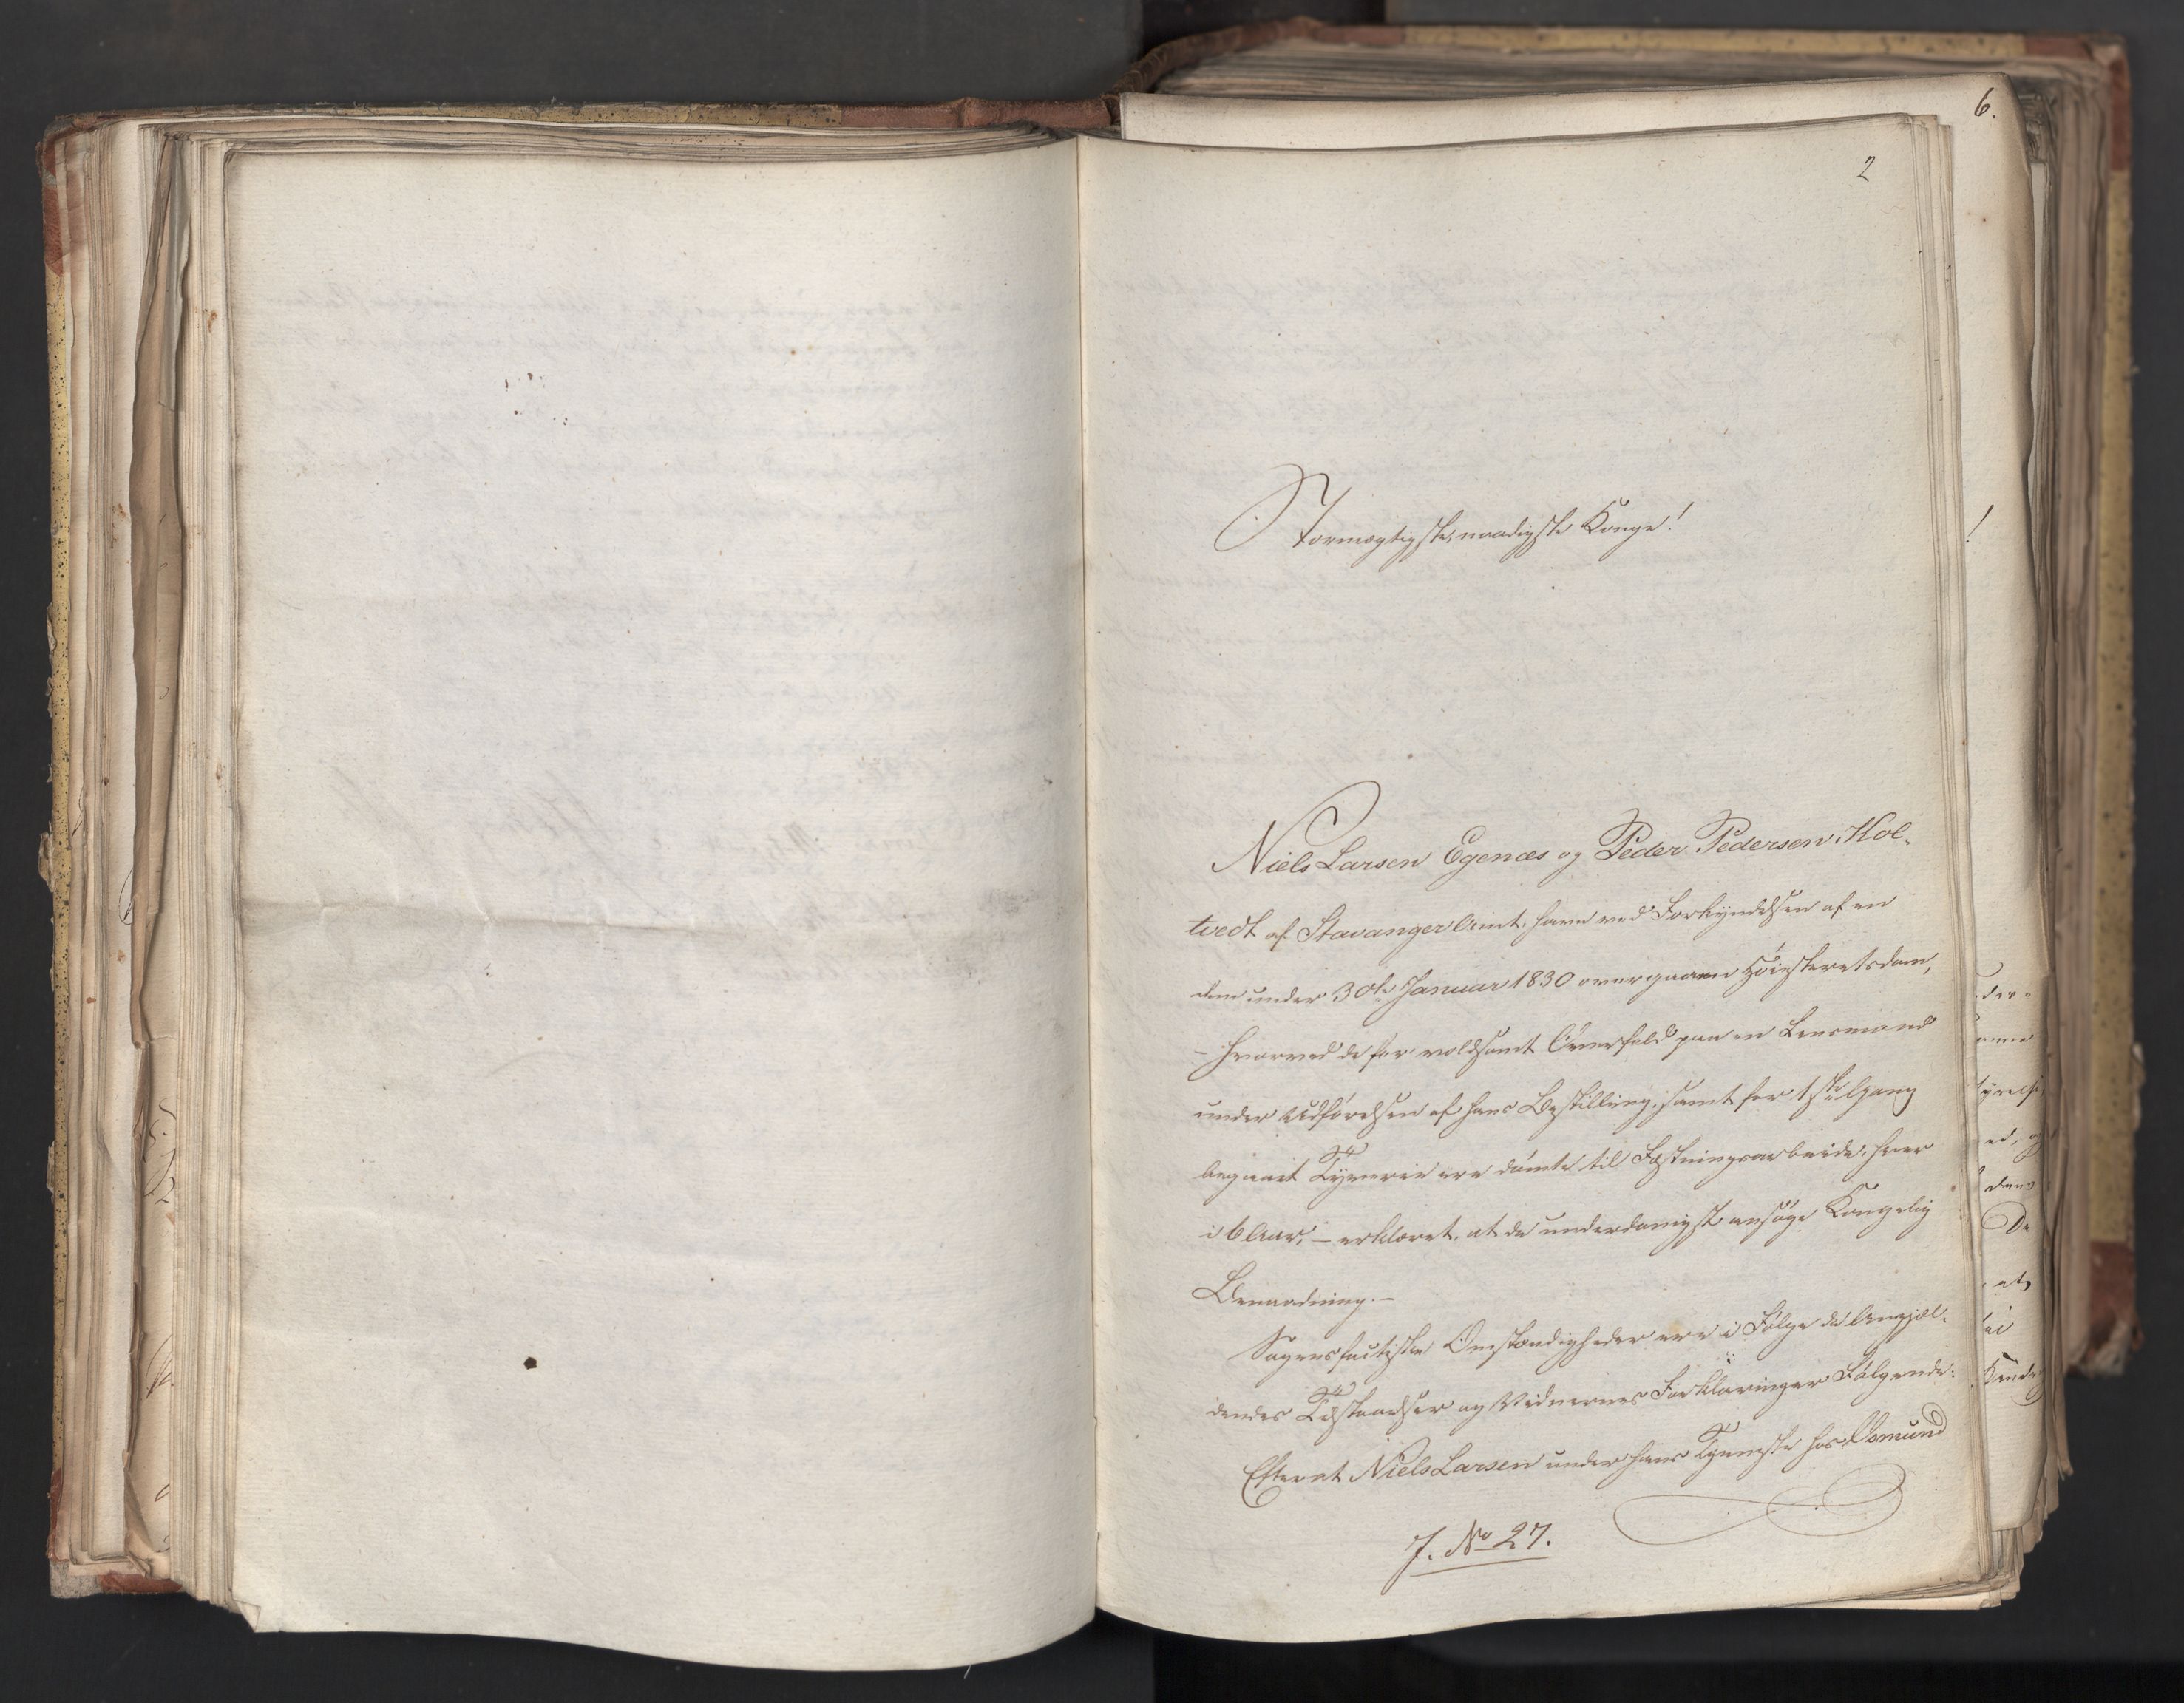 6.
2
Stormægtigste, naadigste Konge!
Niels Larsen Egenæs og Peder Pedersen Kol-
tvedt af Stavanger Amt, have ved Forkyndelsen af en
dem under 30te Januar 1830 overgaaen Høiesteretsdom,
– hvorved de for voldsomt Overfald paa en Lensmand
under Udførelsen af hans Bestilling, samt for 1ste Gang
begaaet Tyverie ere dømte til Fæstningsarbeide, hver
i 6 Aar, – erklæret, at de underdanigst ansøge Kongelig
Benaadning. –
Sagens factiske Omstændigheder ere i Følge de Angjæl-
dendes Tilstaaelser og Vidnernes Forklaringer Følgende:
Efterat Niels Larsen under hans Tjeneste hos Osmund
J. No 27.